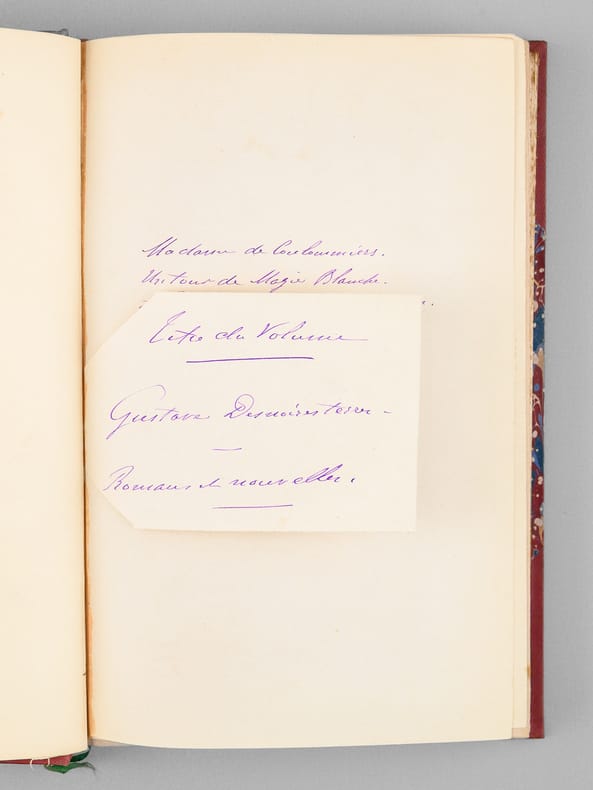 Madame de Coulommiers.
Un tour de Magie Blanche.
Titre du Volume
Gustave Desnoiresterres -
Romans et nouvelles.